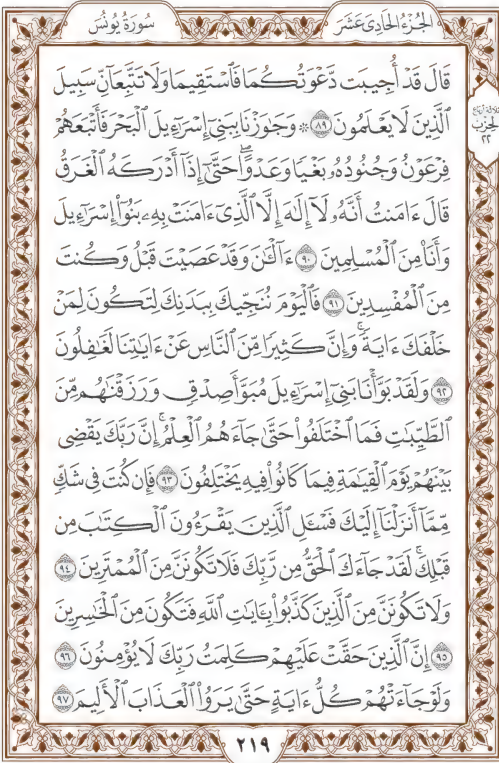 الجُزْءُ الحَادِى عَشَرَ
سُورَةُ يُونُسَ
قَالَ قَدْ أُجِيبَت دَّعْوَتُكُمَا فَٱسْتَقِيمَا وَلَا تَتَّبِعَآنِّ سَبِيلَ
ٱلَّذِينَ لَا يَعْلَمُونَ ٨٩ ۞ وَجَٰوَزْنَا بِبَنِىٓ إِسْرَٰٓءِيلَ ٱلْبَحْرَ فَأَتْبَعَهُمْ
فِرْعَوْنُ وَجُنُودُهُۥ بَغْيًا وَعَدْوًا ۖ حَتَّىٰٓ إِذَآ أَدْرَكَهُ ٱلْغَرَقُ
قَالَ ءَامَنتُ أَنَّهُۥ لَآ إِلَٰهَ إِلَّا ٱلَّذِىٓ ءَامَنَتْ بِهِۦ بَنُوٓا۟ إِسْرَٰٓءِيلَ
وَأَنَا۠ مِنَ ٱلْمُسْلِمِينَ ٩٠ ءَآلْـَٰٔنَ وَقَدْ عَصَيْتَ قَبْلُ وَكُنتَ
مِنَ ٱلْمُفْسِدِينَ ٩١ فَٱلْيَوْمَ نُنَجِّيكَ بِبَدَنِكَ لِتَكُونَ لِمَنْ
خَلْفَكَ ءَايَةً ۚ وَإِنَّ كَثِيرًا مِّنَ ٱلنَّاسِ عَنْ ءَايَٰتِنَا لَغَٰفِلُونَ
٩٢ وَلَقَدْ بَوَّأْنَا بَنِىٓ إِسْرَٰٓءِيلَ مُبَوَّأَ صِدْقٍ وَرَزَقْنَٰهُم مِّنَ
ٱلطَّيِّبَٰتِ فَمَا ٱخْتَلَفُوا۟ حَتَّىٰ جَآءَهُمُ ٱلْعِلْمُ ۚ إِنَّ رَبَّكَ يَقْضِى
بَيْنَهُمْ يَوْمَ ٱلْقِيَٰمَةِ فِيمَا كَانُوا۟ فِيهِ يَخْتَلِفُونَ ٩٣ فَإِن كُنتَ فِى شَكٍّ
مِّمَّآ أَنزَلْنَآ إِلَيْكَ فَسْـَٔلِ ٱلَّذِينَ يَقْرَءُونَ ٱلْكِتَٰبَ مِن
قَبْلِكَ ۚ لَقَدْ جَآءَكَ ٱلْحَقُّ مِن رَّبِّكَ فَلَا تَكُونَنَّ مِنَ ٱلْمُمْتَرِينَ ٩٤
وَلَا تَكُونَنَّ مِنَ ٱلَّذِينَ كَذَّبُوا۟ بِـَٔايَٰتِ ٱللَّهِ فَتَكُونَ مِنَ ٱلْخَٰسِرِينَ
٩٥ إِنَّ ٱلَّذِينَ حَقَّتْ عَلَيْهِمْ كَلِمَتُ رَبِّكَ لَا يُؤْمِنُونَ ٩٦
وَلَوْ جَآءَتْهُمْ كُلُّ ءَايَةٍ حَتَّىٰ يَرَوُا۟ ٱلْعَذَابَ ٱلْأَلِيمَ ٩٧
ثلاثة أرباع
الحزب
٢٢
٢١٩